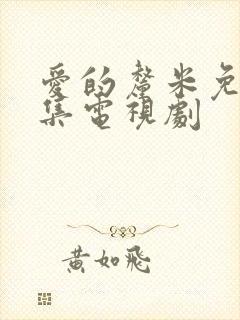 愛的釐米免
集電視劇
黃如飛